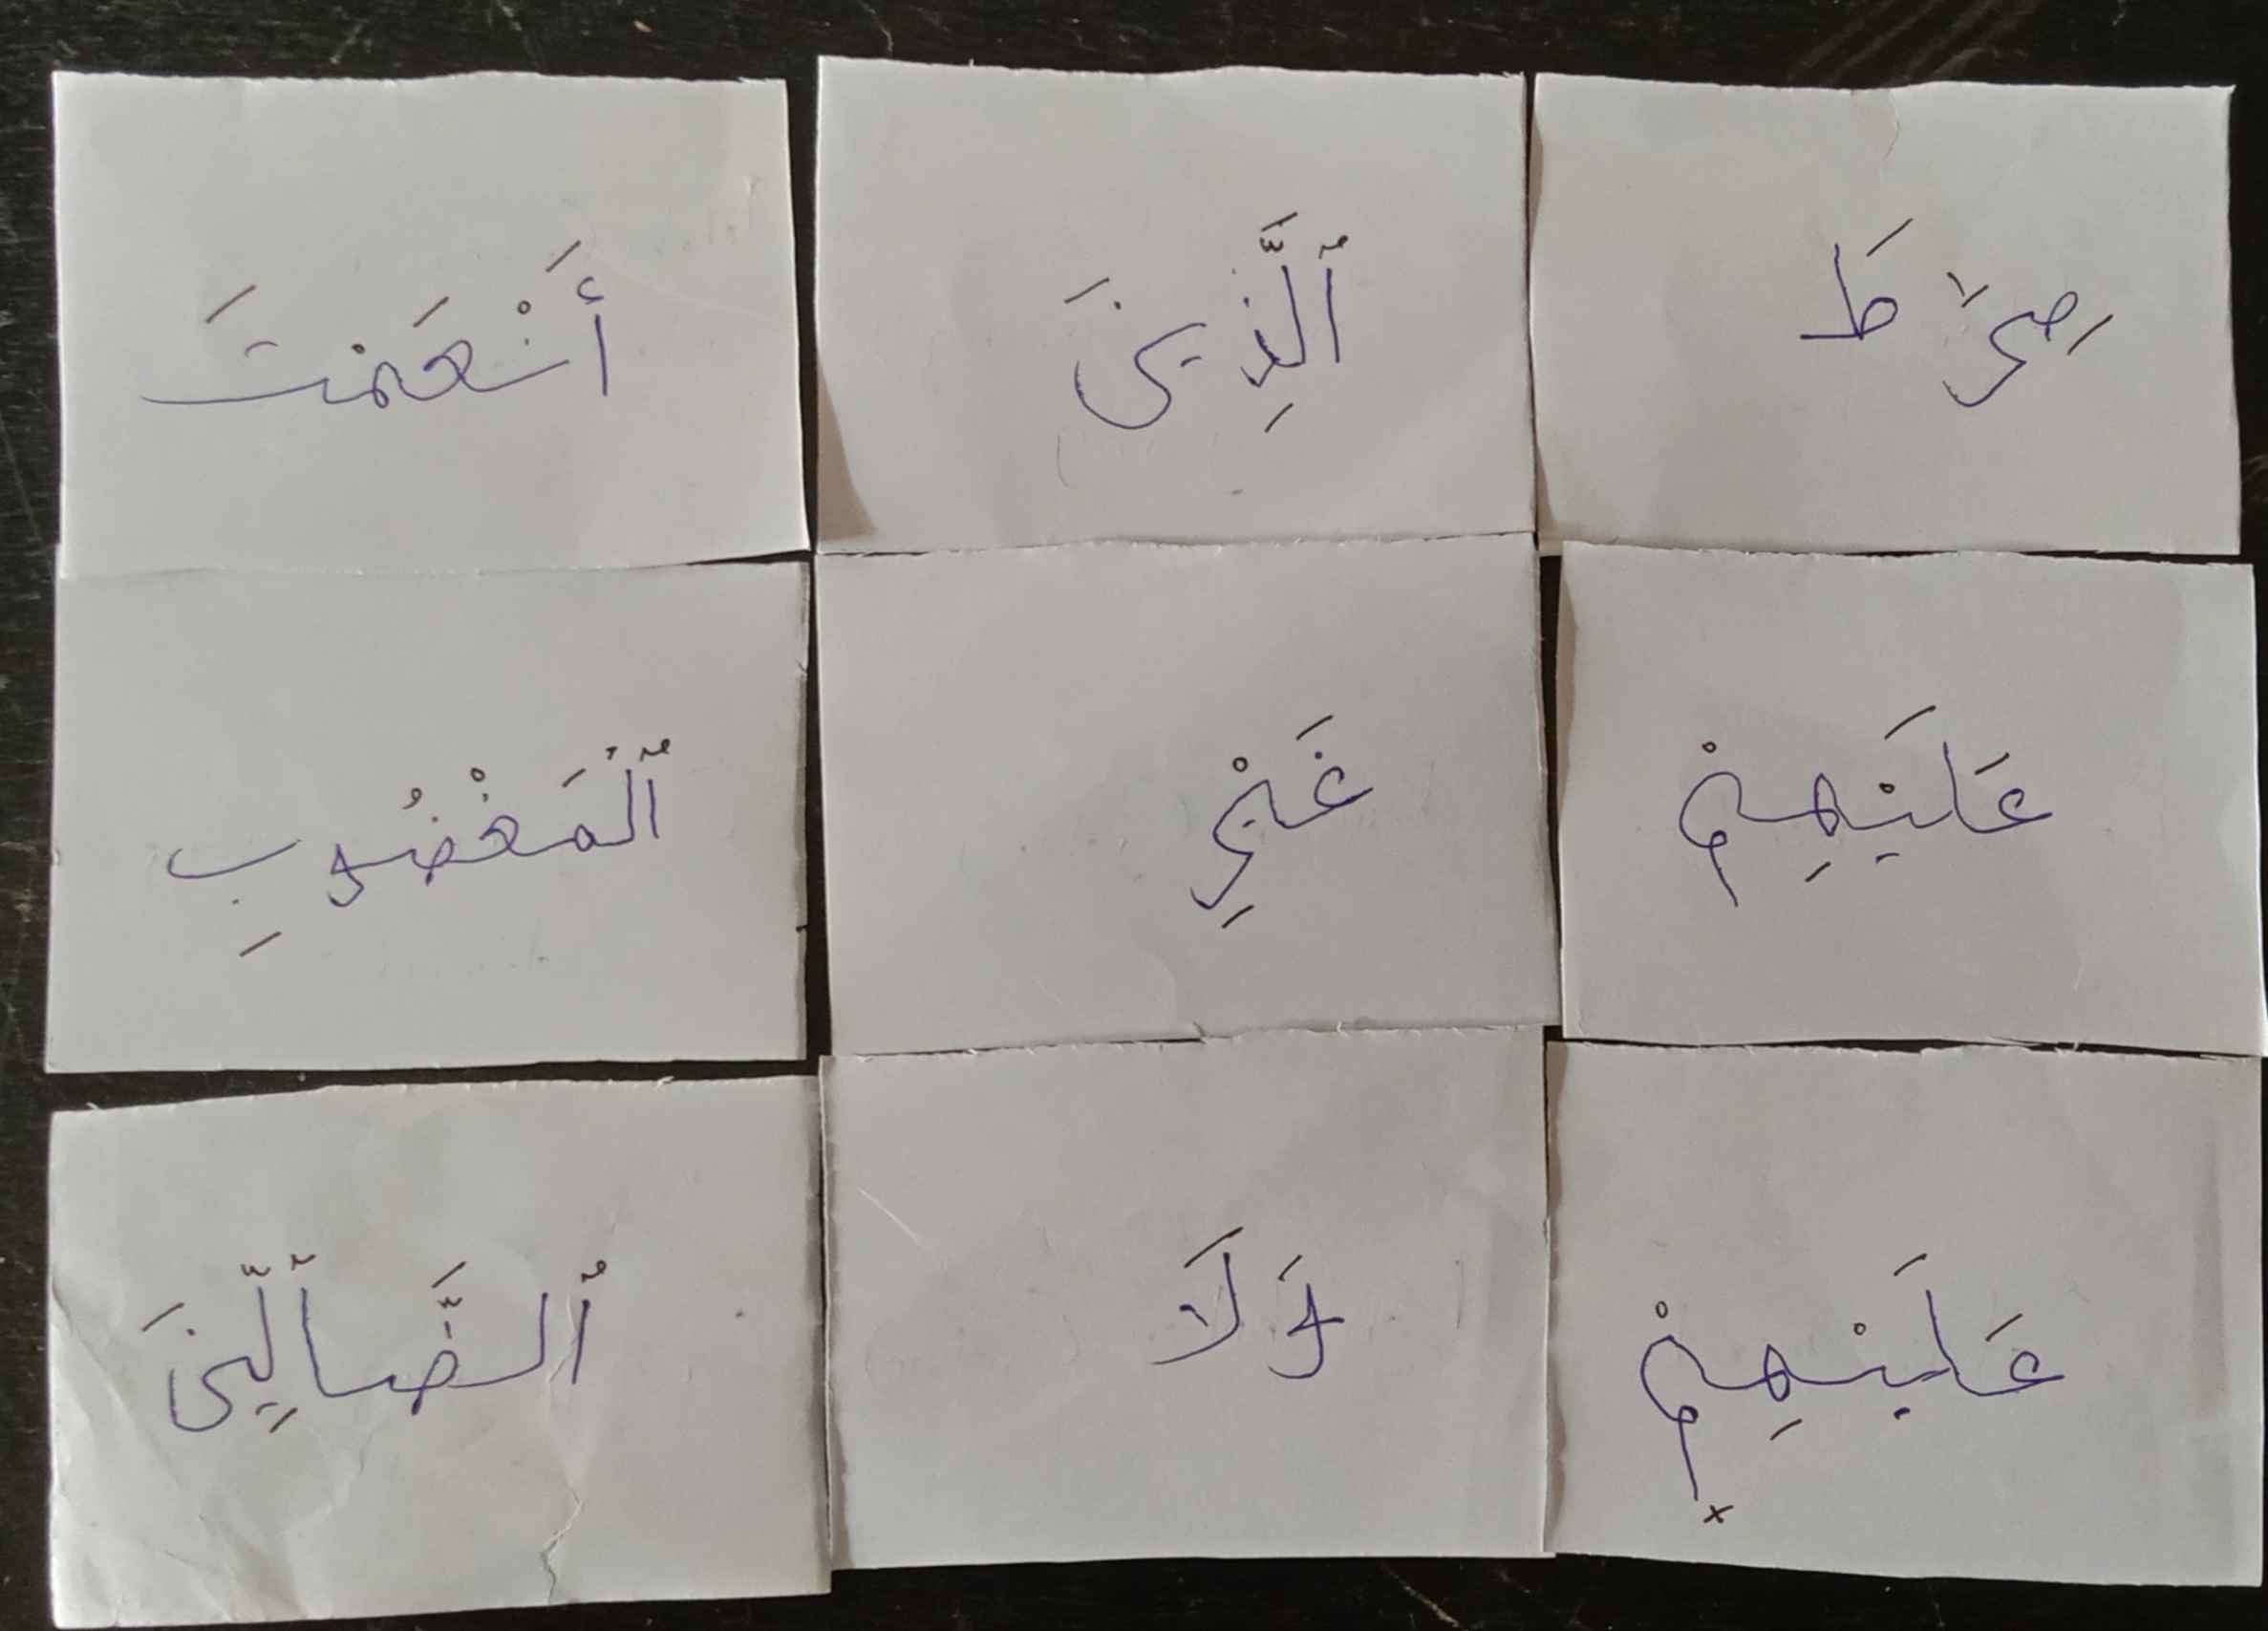 صِرَٰطَ ٱلَّذِينَ أَنْعَمْتَ
عَلَيْهِمْ غَيْرِ ٱلْمَغْضُوبِ
عَلَيْهِمْ وَلَا ٱلضَّآلِّينَ